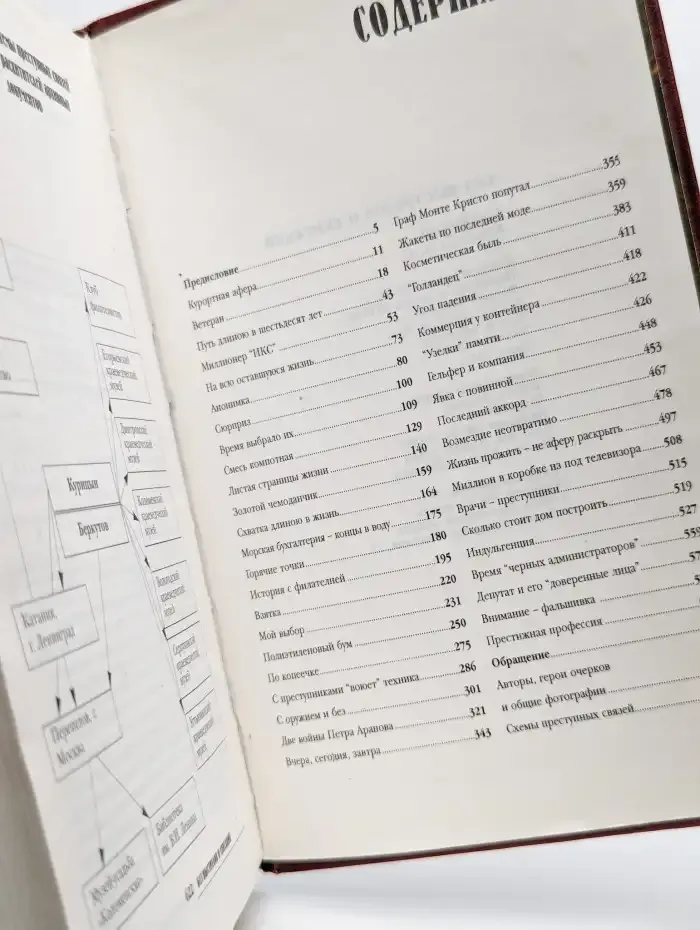 преступных связей
расхитителей архивных
документов
Клуб
филателистов
Егорьевский
краеведческий
музей
Дмитровский
краеведческий
музей
Курицын
Беркутов
краеведческий
музей
краеведческий
музей
краеведческий
музей
краеведческий
музей
Катанин,
г. Ленинград
г.
Москва
Библиотека
им. В.И. Ленина
Музей-усадьба
622
СОДЕРЖА
Предисловие 5
Курортная афера 11
Ветеран 18
Путь длиною в шестьдесят лет 43
Миллионер "ИКС" 53
На всю оставшуюся жизнь 73
Анонимка 80
Сюрприз 100
Время выбрало их 109
Смесь компотная 129
Листая страницы жизни 140
Золотой чемоданчик 159
Схватка длиною в жизнь 164
Морская бухгалтерия – концы в воду 175
Горячие точки 180
История с филателией 195
Взятка 220
Мой выбор 231
Полиэтиленовый бум 250
По копеечке 275
С преступниками "воюет" техника 286
С оружием и без 301
Две войны Петра Арапова 321
Вчера, сегодня, завтра 343
Граф Монте Кристо попутал 355
Жакеты по последней моде 359
Косметическая быль 383
"Голландец" 411
Угол падения 418
Коммерция у контейнера 422
"Узелки" памяти 426
Гельфер и компания 448
Явка с повинной 453
Последний аккорд 467
Возмездие неотвратимо 478
Жизнь прожить – не аферу раскрыть 497
Миллион в коробке из под телевизора 508
Врачи – преступники 515
Сколько стоит дом построить 519
Индульгенция 527
Время "черных администраторов" 559
Депутат и его "доверенные лица" 57
Внимание – фальшивка 5
Престижная профессия
Обращение
Авторы, герои очерков
и общие фотографии
Схемы преступных связей